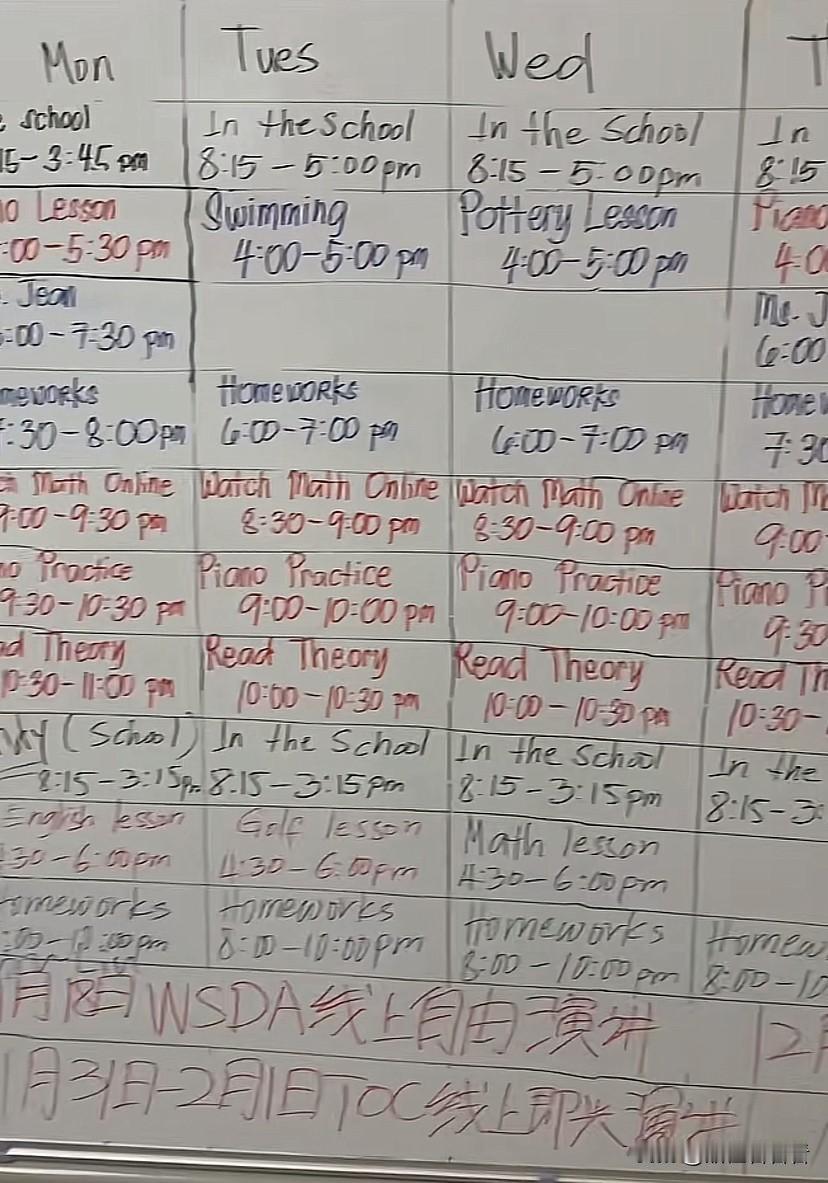 Mon Tues Wed T
school In the School In the School In
15-3:45 pm 8:15-5:00pm 8:15-5:00pm 8:15
no Lesson Swimming Pottery Lesson Piano
:00-5:30 pm 4:00-5:00 pm 4:00-5:00 pm 4:0
. Jean Ms. J
:00-7:30 pm 6:00
meworks Homeworks Homeworks Homew
:30-8:00pm 6:00-7:00 pm 6:00-7:00 pm 7:30
Math Online Watch Math Online Watch Math Online Watch M
9:00-9:30 pm 8:30-9:00 pm 8:30-9:00 pm 9:00
no Practice Piano Practice Piano Practice Piano P
9:30-10:30 pm 9:00-10:00 pm 9:00-10:00 pm 9:30
ad Theory Read Theory Read Theory Read Th
10:30-11:00 pm 10:00-10:30 pm 10:00-10:30 pm 10:30-
(School) In the School In the School In the
8:15-3:15pm 8:15-3:15pm 8:15-3:15pm 8:15-3:
English lesson Golf lesson Math lesson
:30-6:00pm 4:30-6:00pm 4:30-6:00pm
omeworks Homeworks Homeworks Homew
8:00-10:00pm 8:00-10:00pm 8:00-10
月18日WSDA线上自由演讲 12月
1月31日-2月1日TOC线上即兴演讲